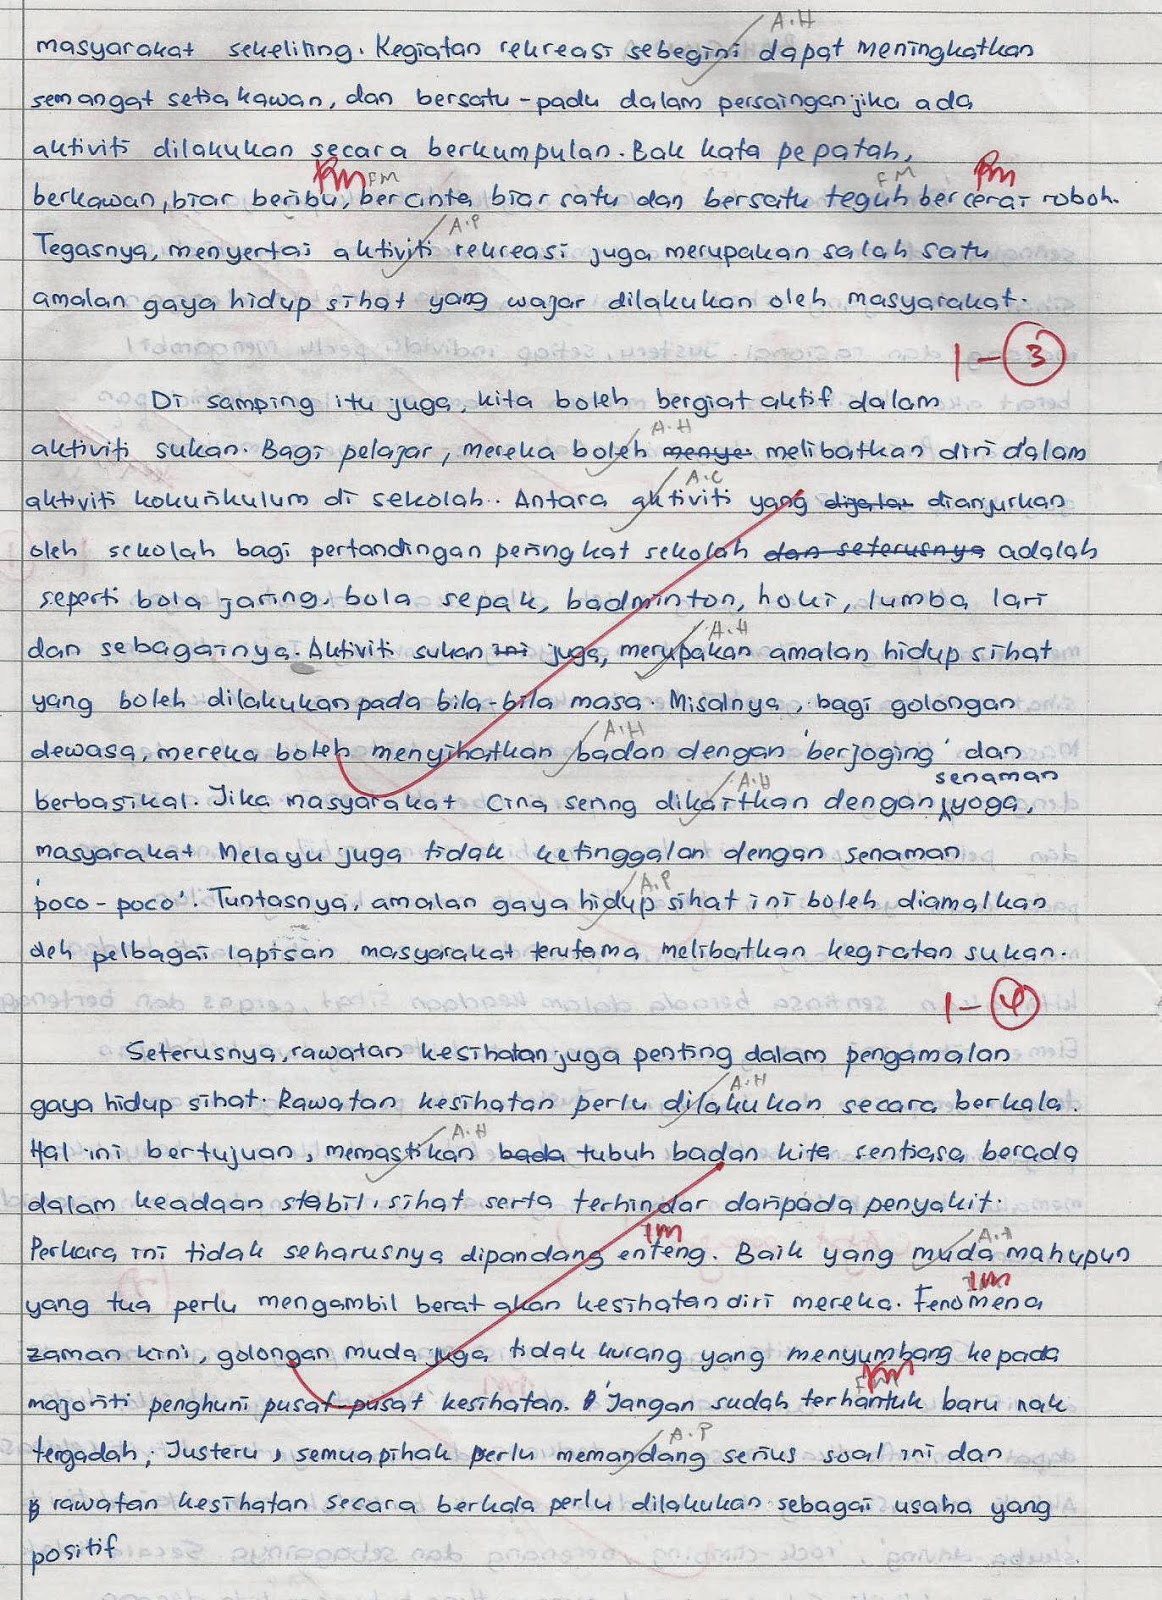 A.H
masyarakat sekeliling. Kegiatan rekreasi sebegini dapat meningkatkan
semangat setia kawan, dan bersatu-padu dalam persaingan jika ada
aktiviti dilakukan secara berkumpulan. Bak kata pepatah,
FM FM FM FM
berkawan, biar beribu, bercinta biar satu dan bersatu teguh bercerai roboh.
A.P
Tegasnya, menyertai aktiviti rekreasi juga merupakan salah satu
amalan gaya hidup sihat yang wajar dilakukan oleh masyarakat.
1-3
Di samping itu juga, kita boleh bergiat aktif dalam
A.H
aktiviti sukan. Bagi pelajar, mereka boleh menye melibatkan diri dalam
A.C
aktiviti kokurikulum di sekolah. Antara aktiviti yang dijalan dianjurkan
oleh sekolah bagi pertandingan peringkat sekolah dan seterusnya adalah
seperti bola jaring, bola sepak, badminton, hoki, lumba lari
A.H
dan sebagainya. Aktiviti sukan ini juga, merupakan amalan hidup sihat
yang boleh dilakukan pada bila-bila masa. Misalnya, bagi golongan
A.H
dewasa, mereka boleh menyihatkan badan dengan 'berjoging' dan
A.H senaman
berbasikal. Jika masyarakat Cina sering dikaitkan dengan yoga,
masyarakat Melayu juga tidak ketinggalan dengan senaman
A.P
'poco-poco'. Tuntasnya, amalan gaya hidup sihat ini boleh diamalkan
oleh pelbagai lapisan masyarakat terutama melibatkan kegiatan sukan.
1-4
Seterusnya, rawatan kesihatan juga penting dalam pengamalan
A.H
gaya hidup sihat. Rawatan kesihatan perlu dilakukan secara berkala.
A.H
Hal ini bertujuan, memastikan bada tubuh badan kita sentiasa berada
dalam keadaan stabil, sihat serta terhindar daripada penyakit.
IM A.H
Perkara ini tidak seharusnya dipandang enteng. Baik yang muda mahupun
IM
yang tua perlu mengambil berat akan kesihatan diri mereka. Fenomena
zaman kini, golongan muda juga tidak kurang yang menyumbang kepada
FM
majoriti penghuni pusat-pusat kesihatan. 'Jangan sudah terhantuk baru nak
A.P
tergadah; Justeru, semua pihak perlu memandang serius soal ini dan
rawatan kesihatan secara berkala perlu dilakukan sebagai usaha yang
positif